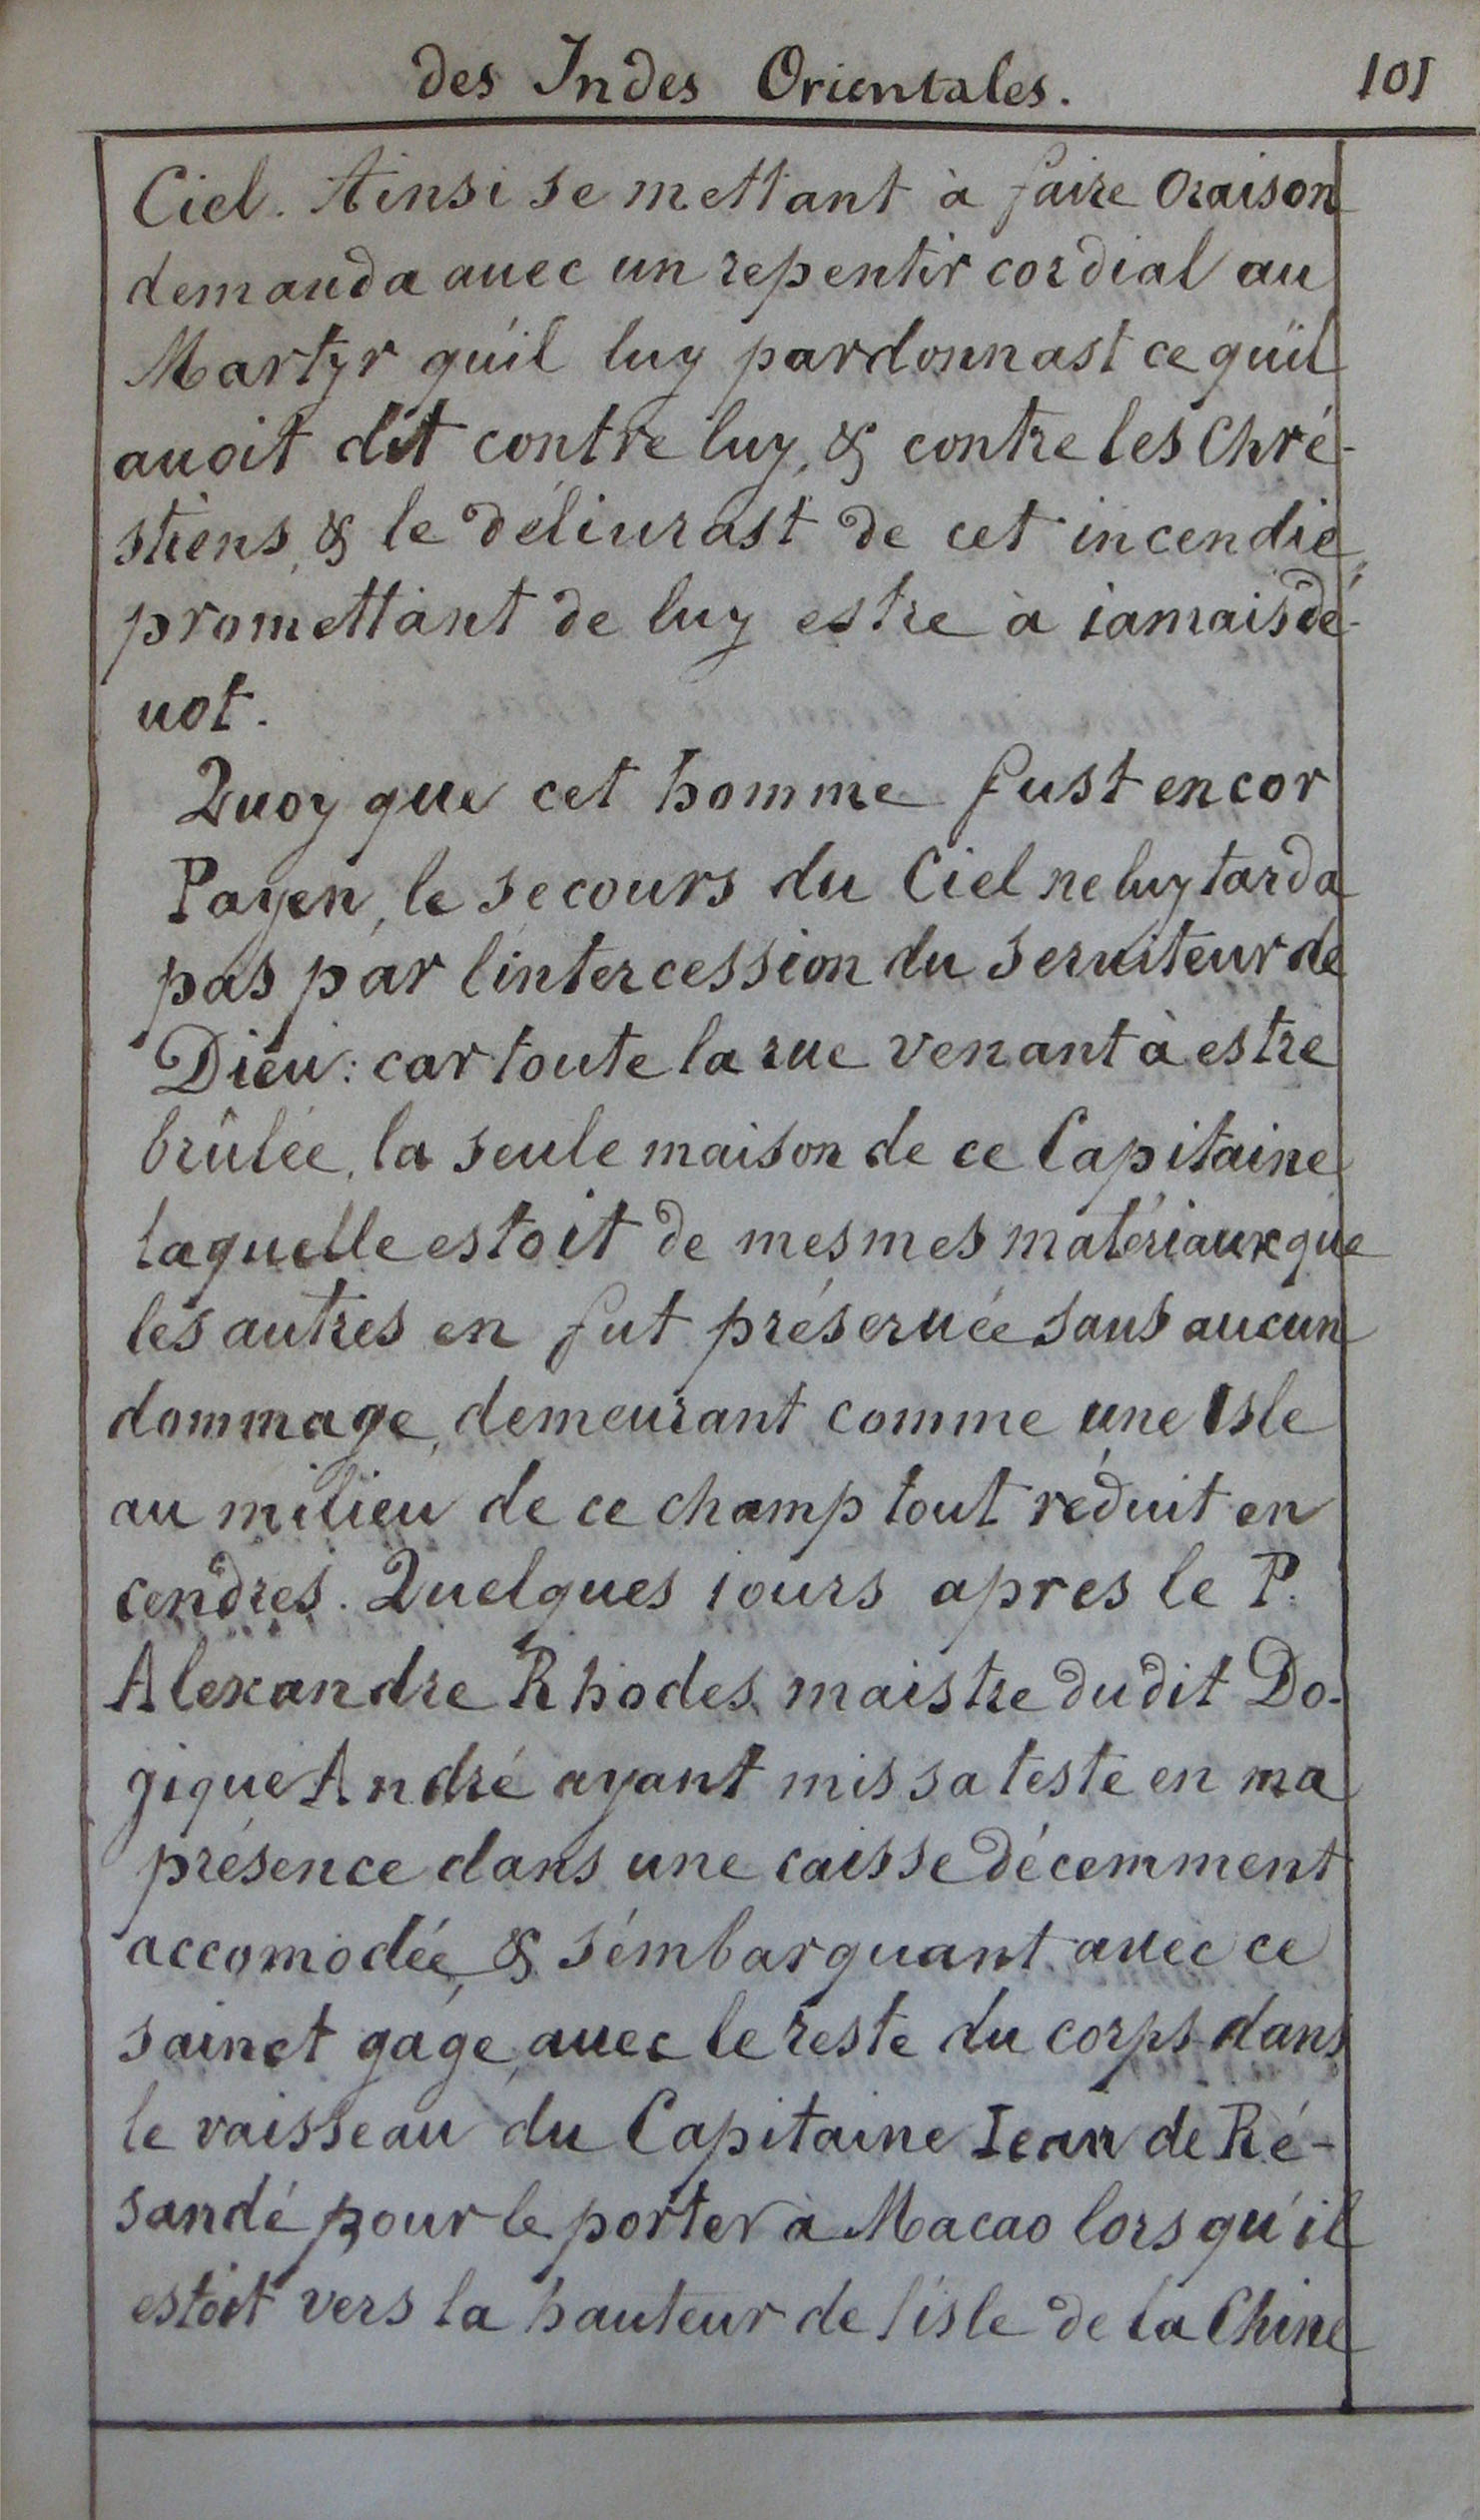 des Indes Orientales. 101
Ciel. Ainsi se mettant à faire Oraison
demanda auec un repentir cordial au
Martyr qu'il luy pardonnast ce qu'il
auoit dit contre luy, & contre les Chré-
stiens, & le déliurast de cet incendie,
promettant de luy estre à iamais dé-
uot.
Quoy que cet homme fust encor
Payen, le secours du Ciel ne luy tarda
pas par l'intercession du seruiteur de
Dieu: car toute la rue venant à estre
brûlée, la seule maison de ce Capitaine
laquelle estoit de mesmes matériaux que
les autres en fut préseruée sans aucun
dommage, demeurant comme une Isle
au milieu de ce champ tout réduit en
cendres. Quelques iours apres le P.
Alexandre Rhodes maistre dudit Do-
gique André ayant mis sa teste en ma
présence dans une caisse décemment
accomodée, & s'émbarquant auec ce
sainct gage, auec le reste du corps dans
le vaisseau du Capitaine Iean de Ré-
sandé pour le porter à Macao lors qu'il
estoit vers la hauteur de l'isle de la Chine